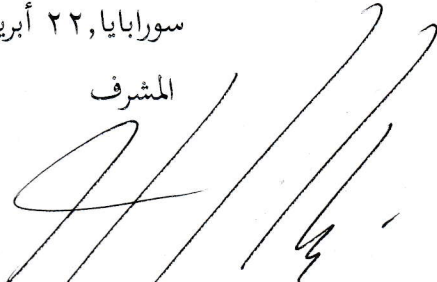 سورابايا, ٢٢
المشرف